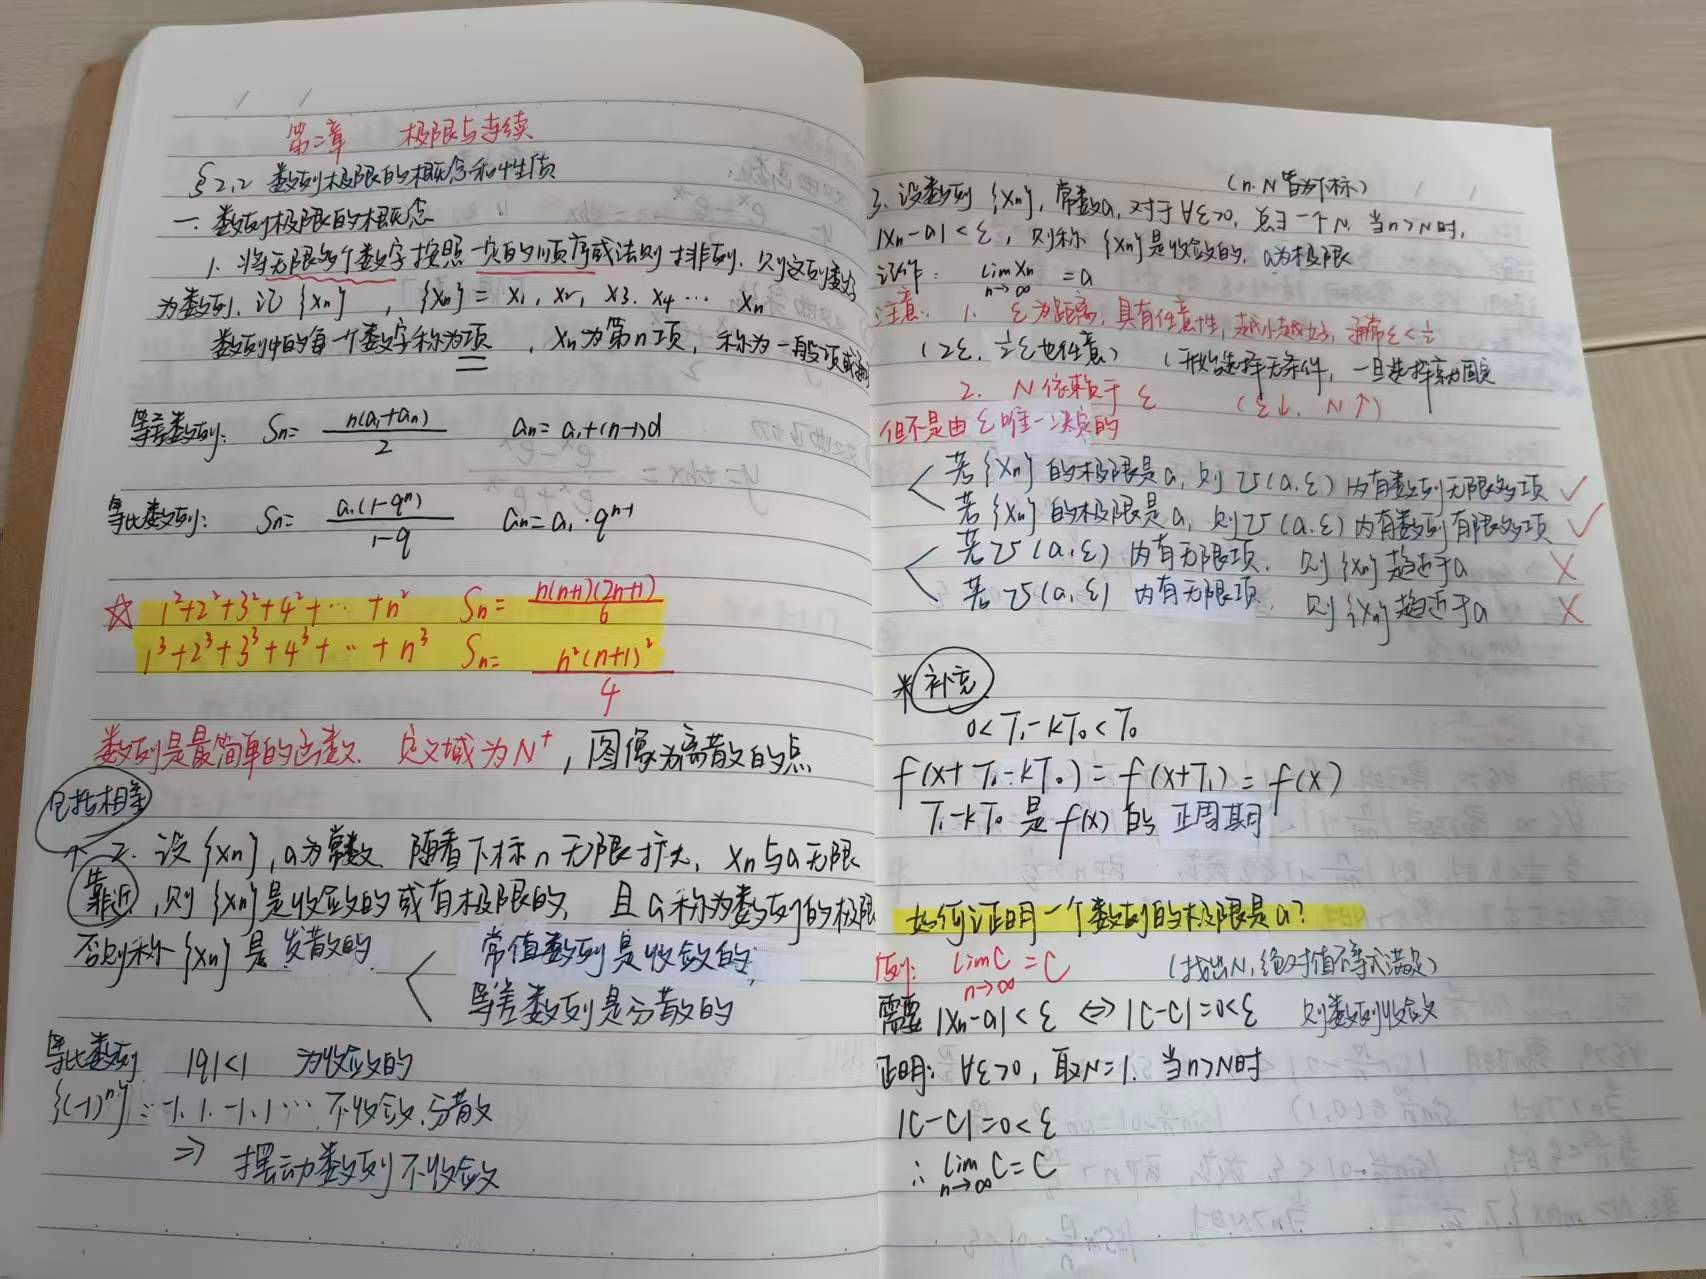 第二章 极限与连续
§2.2 数列极限的概念和性质
一. 数列极限的概念
1. 将无限多个数字按照一定的顺序或法则排列. 则这列数
为数列. 记{xn}, {xn} = x1, x2, x3. x4 ··· xn
数列中的每一个数字称为项, xn为第n项, 称为一般项或
等差数列: Sn= n(a1+an)/2 an=a1+(n-1)d
等比数列: Sn= a1(1-q^n)/1-q an=a1·q^n-1
☆ 1²+2²+3²+4²+··· +n² Sn= n(n+1)(2n+1)/6
1³+2³+3³+4³+··· + n³ Sn= n²(n+1)²/4
数列是最简单的函数. 定义域为N⁺, 图像为离散的点
包括相等
↑ 2. 设{xn}, a为常数 随着下标n无限扩大, xn与a无限
靠近, 则{xn}是收敛的或有极限的, 且a称为数列的极限
否则称{xn}是发散的
常值数列是收敛的
等差数列是分散的
等比数列 |q|<1 为收敛的
{(-1)^n} = -1. 1. -1. 1 ··· 不收敛. 分散
⇒ 摆动数列不收敛
(n. N皆为下标)
3. 设数列{xn}, 常数a, 对于∀ε>0, 总ヨ一个N, 当n>N时,
|xn-a|<ε, 则称{xn}是收敛的, a为极限
记作: lim n→∞ xn = a
注意: 1. ε为距离, 具有任意性, 越小越好, 通常ε<½
(2ε, ½ε也任意) (开始选择无条件, 一旦选择就为固定
2. N依赖于ε (ε↓. N↑)
但不是由ε唯一决定的
若{xn}的极限是a, 则U(a.ε)内有数列无限多项 ✓
若{xn}的极限是a, 则U(a.ε)内有数列有限多项 ✓
若U(a.ε)内有无限项. 则{xn}趋近于a ×
若U(a,ε)内有无限项, 则{xn}趋近于a ×
* 补充
0<T1-kT0<T0
f(x+T1-kT0) = f(x+T1) = f(x)
T1-kT0是f(x)的正周期
如何证明一个数列的极限是a?
例: lim n→∞ C = C (找出N, 绝对值不等式满足)
需要|xn-a|<ε ⇔ |C-C|=0<ε 则数列收敛
证明: ∀ε>0, 取N=1. 当n>N时
|C-C|=0<ε
∴ lim n→∞ C=C